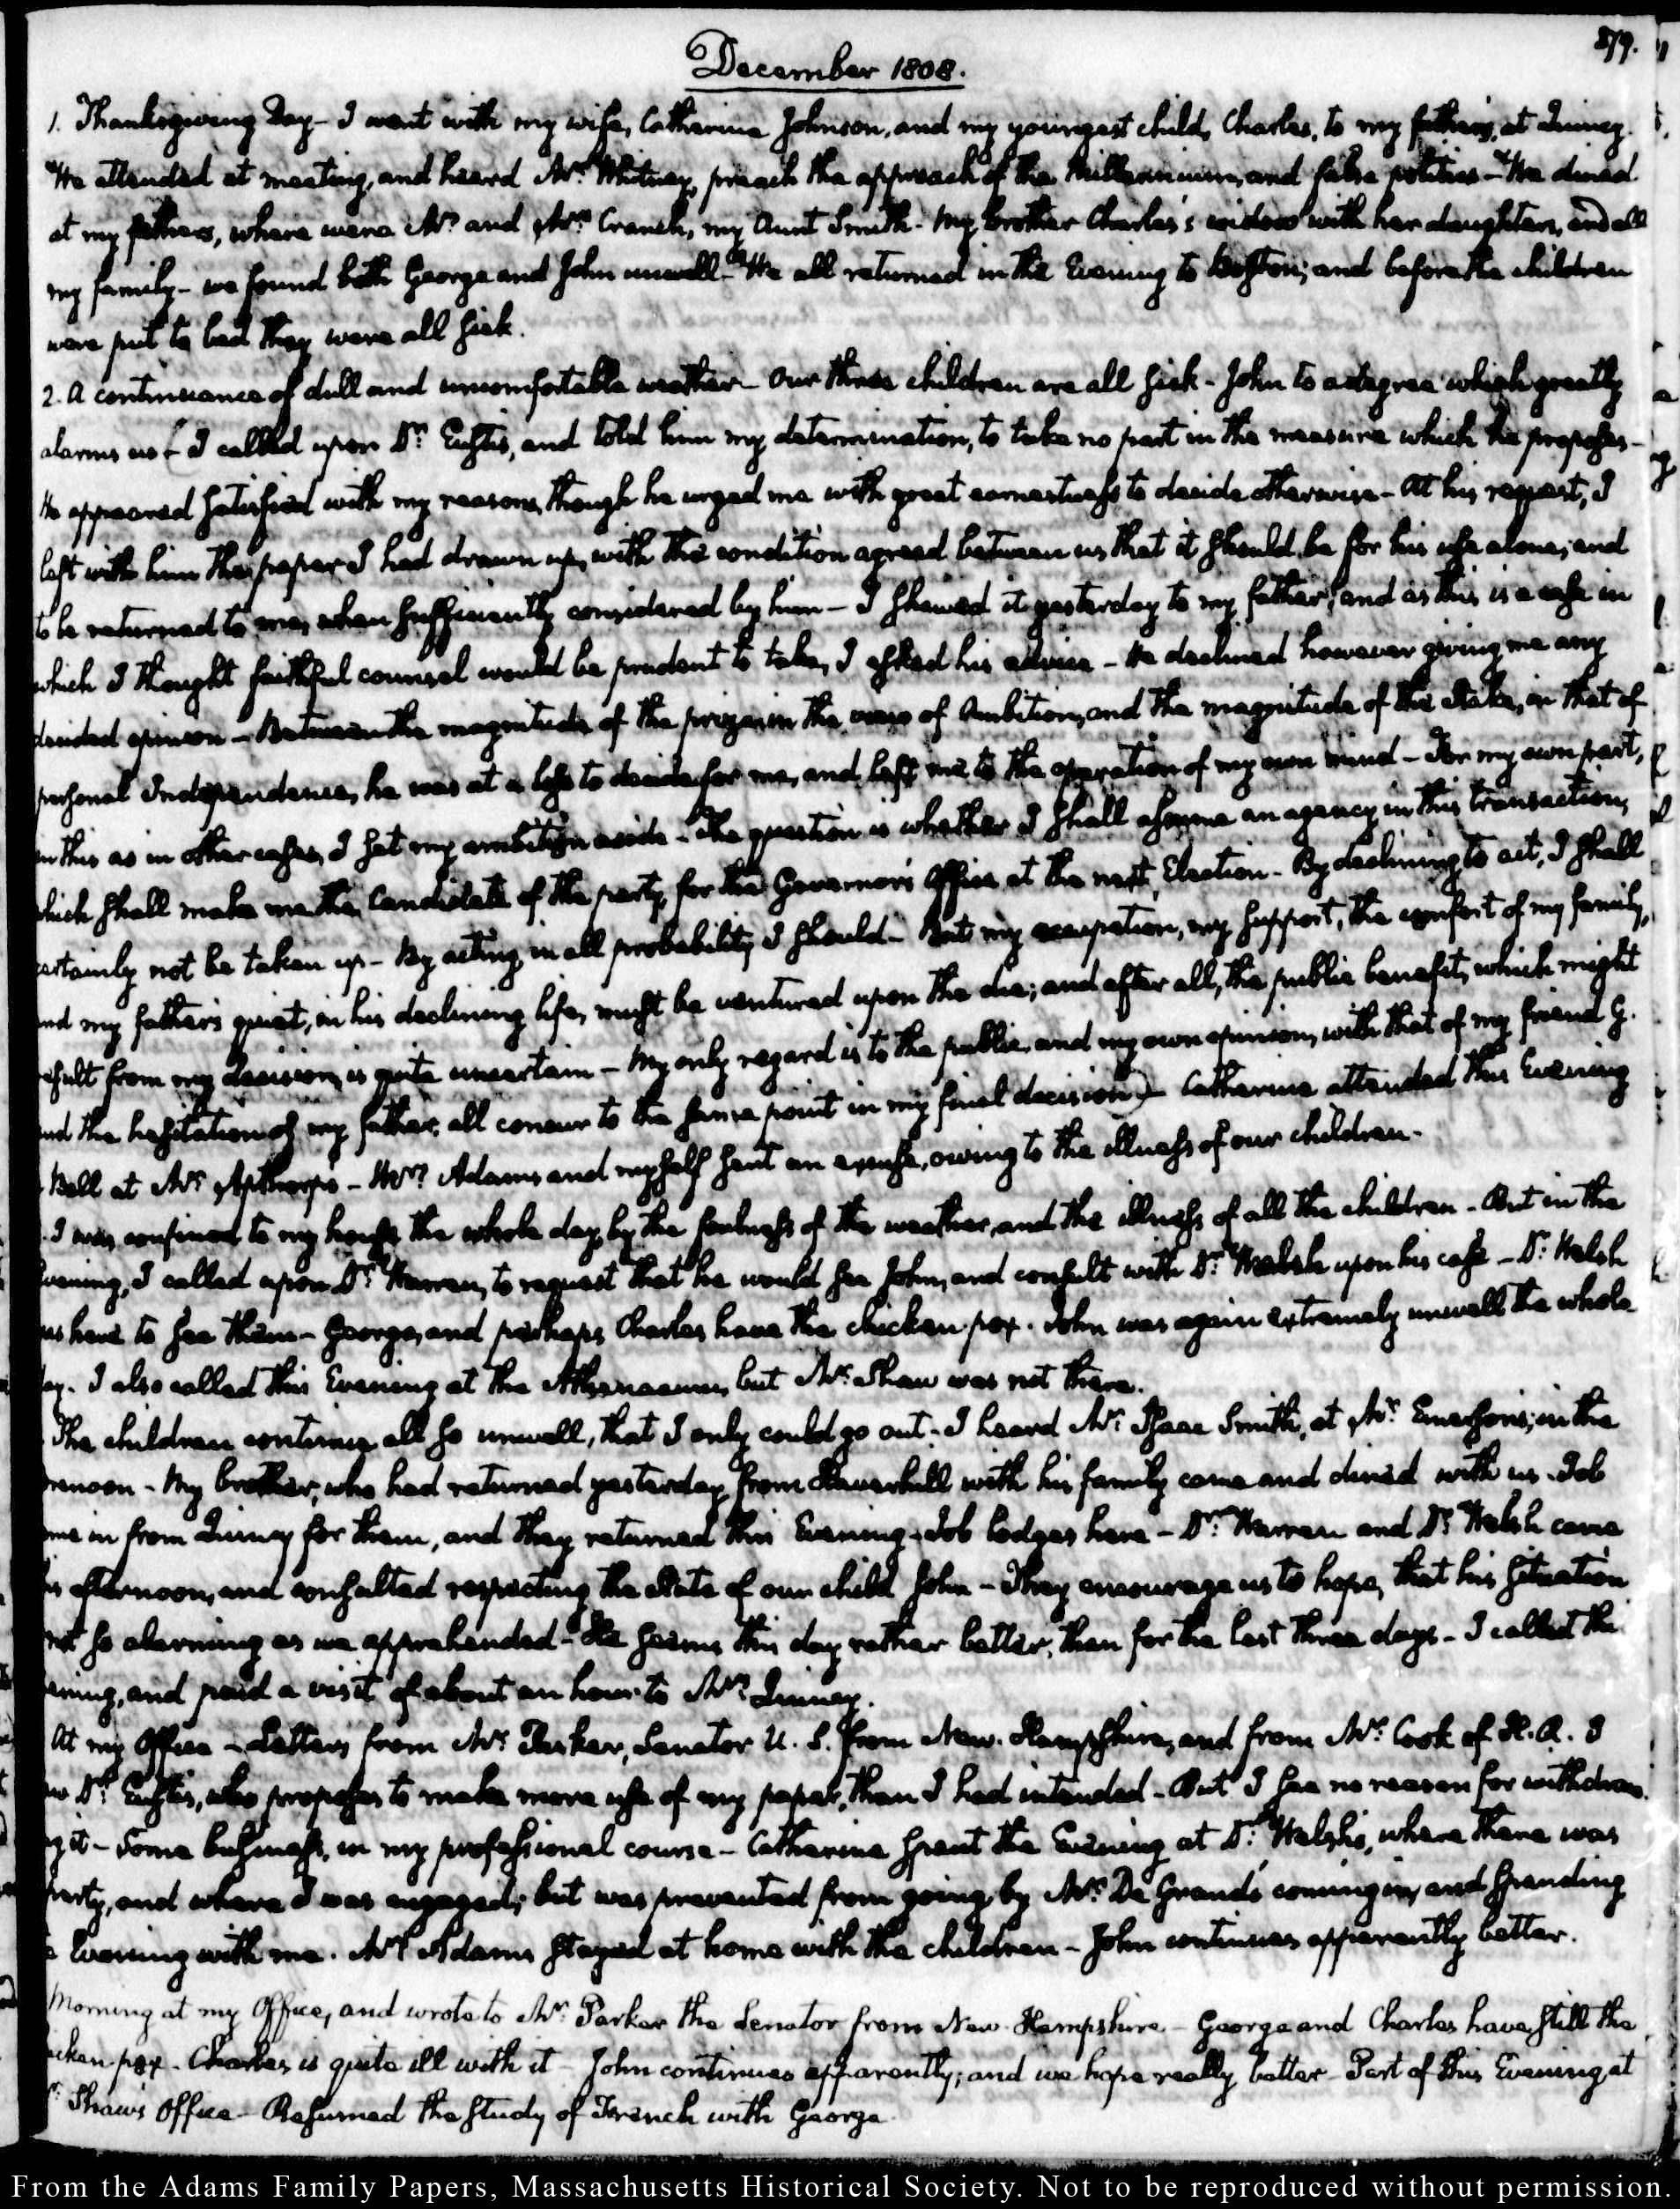 379.
December 1808.
1. Thanksgiving Day - I went with my wife, Catherine Johnson, and my youngest child, Charles, to my father's, at Quincy.
We attended at meeting, and heard Mr. Whitney, preach the approach of the Millennium, and false politics - We dined
at my fathers, where were Mr. and Mrs. Cranch, my Aunt Smith - My brother Charles's widow with her daughters, and all
my family - we found both George and John unwell - We all returned in the Evening to Boston; and before the children
were put to bed they were all sick.
2. A continuance of dull and uncomfortable weather - Our three children are all sick - John to a degree which greatly
alarms us - ( I called upon Dr. Eustis, and told him my determination, to take no part in the measure which he proposes -
He appeared satisfied with my reasons, though he urged me with great earnestness to decide otherwise - At his request, I
left with him the paper I had drawn up, with the condition agreed between us that it should be for his use alone; and
to be returned to me, when sufficiently considered by him - I shewed it yesterday to my father, and as this is a case in
which I thought faithful counsel would be prudent to take, I asked his advice - He declined however giving me any
decided opinion - Between the magnitude of the prize in the view of Ambition, and the magnitude of the stake, in that of
personal Independence, he was at a loss to decide for me, and left me to the operation of my own mind - For my own part,
in this as in other cases, I set my ambition aside - The question is whether I shall assume an agency in this transaction,
which shall make me the Candidate of the party, for the Governor's Office at the next Election - By declining to act, I shall
certainly not be taken up - By acting, in all probability I should - But my occupation, my support, the comfort of my family,
and my father's quiet, in his declining life, must be ventured upon the die; and after all, the public benefit, which might
result from my decision, is quite uncertain - My only regard is to the public, and my own opinion, with that of my friend G.
and the hesitation of my father, all concur to the same point in my final decision ) - Catherine attended this Evening
Ball at Mr. Apthorp's - Mrs. Adams and myself sent an excuse, owing to the illness of our children.
I was confined to my house the whole day, by the foulness of the weather, and the illness of all the children - But in the
Evening, I called upon Dr. Warren, to request that he would see John, and consult with Dr. Welsh upon his case - Dr. Welsh
was here to see them - George, and perhaps Charles have the chicken-pox. John was again extremely unwell the whole
day. I also called this Evening at the Athenaeum, but Mr. Shaw was not there.
The children continue all so unwell, that I only could go out - I heard Mr. Isaac Smith, at Mr. Emerson's; in the
forenoon - My brother, who had returned yesterday from Haverhill with his family came and dined with us - Job
came in from Quincy for them, and they returned this Evening - Job lodges here - Dr. Warren and Dr. Welsh came
this afternoon, and consulted respecting the state of our child John - They encourage us to hope, that his situation
not so alarming as we apprehended - He seems this day rather better, than for the last three days - I called this
evening, and paid a visit of about an hour to Mrs. Quincy.
At my Office - Letters from Mr. Parker, Senator U. S. from New-Hampshire, and from Mr. Cook of H. R. I
saw Dr. Eustis, who proposes to make more use of my paper, than I had intended - But I see no reason for withdraw-
ing it - Some business, in my professional course - Catherine spent the Evening at Dr. Welsh's, where there was
party, and where I was engaged; but was prevented from going by Mr. De Grand's coming in, and spending
the Evening with me. Mrs. Adams stayed at home with the children - John continues apparently better.
Morning at my Office, and wrote to Mr. Parker the Senator from New-Hampshire - George and Charles have still the
chicken-pox - Charles is quite ill with it - John continues apparently; and we hope really better - Part of this Evening at
Mr. Shaw's Office - Resumed the study of French with George.
From the Adams Family Papers, Massachusetts Historical Society. Not to be reproduced without permission.